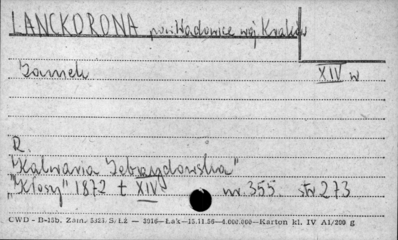 LANCKORONA pow. Wadowice woj. Kraków
Zamek XIV w
R.
"Kalwaria Zebrzydowska"
"Kłosy" 1872 t XIV nr. 355. str 273
CWD - D-15b. Zam. S. 1.2 — 2016—Łak—15.11.56—6.000.000—Karton kl. IV A1/200 g